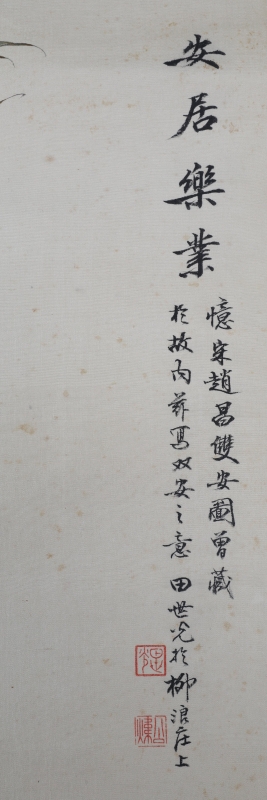 安居樂業
憶宋趙昌雙安圖曾藏
於故內茲寫双安之意田世光於柳浪庄上